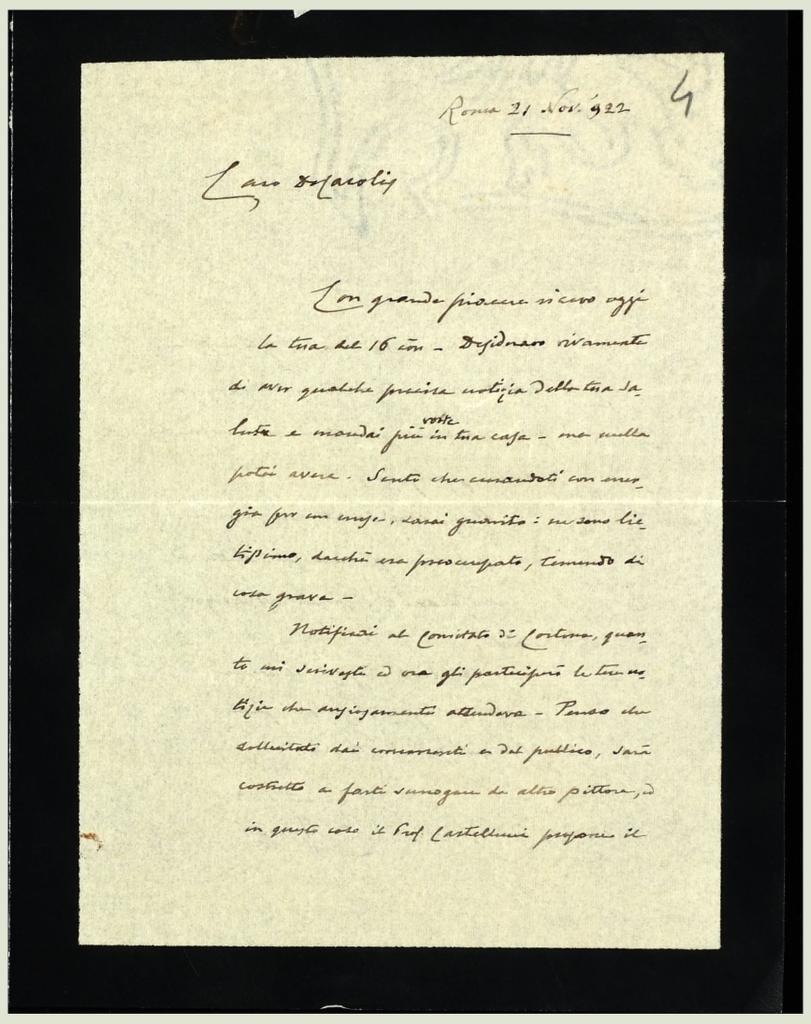 4
Roma 21 Nov. 922
Caro DeCarolis
Con grande piacere ricevo oggi
la tua del 16 corr - Desideravo vivamente
di aver qualche precisa notizia della tua sa-
lute e mandai più volte in tua casa - ma nulla
potei avere. Sento che curandoti con ener-
gia per un mese, sarai guarito: ne sono lie-
tissimo, dacchè ero preoccupato, temendo di
cosa grave -
Notificai al Comitato di Cortona, quan-
to mi scrivesti ed ora gli parteciperò le tue no-
tizie che ansiosamente attendeva - Penso che
sollecitato dai concorrenti e dal publico, sarà
costretto a farti surrogare da altro pittore, ed
in questo caso il Prof. Castellucci propone il